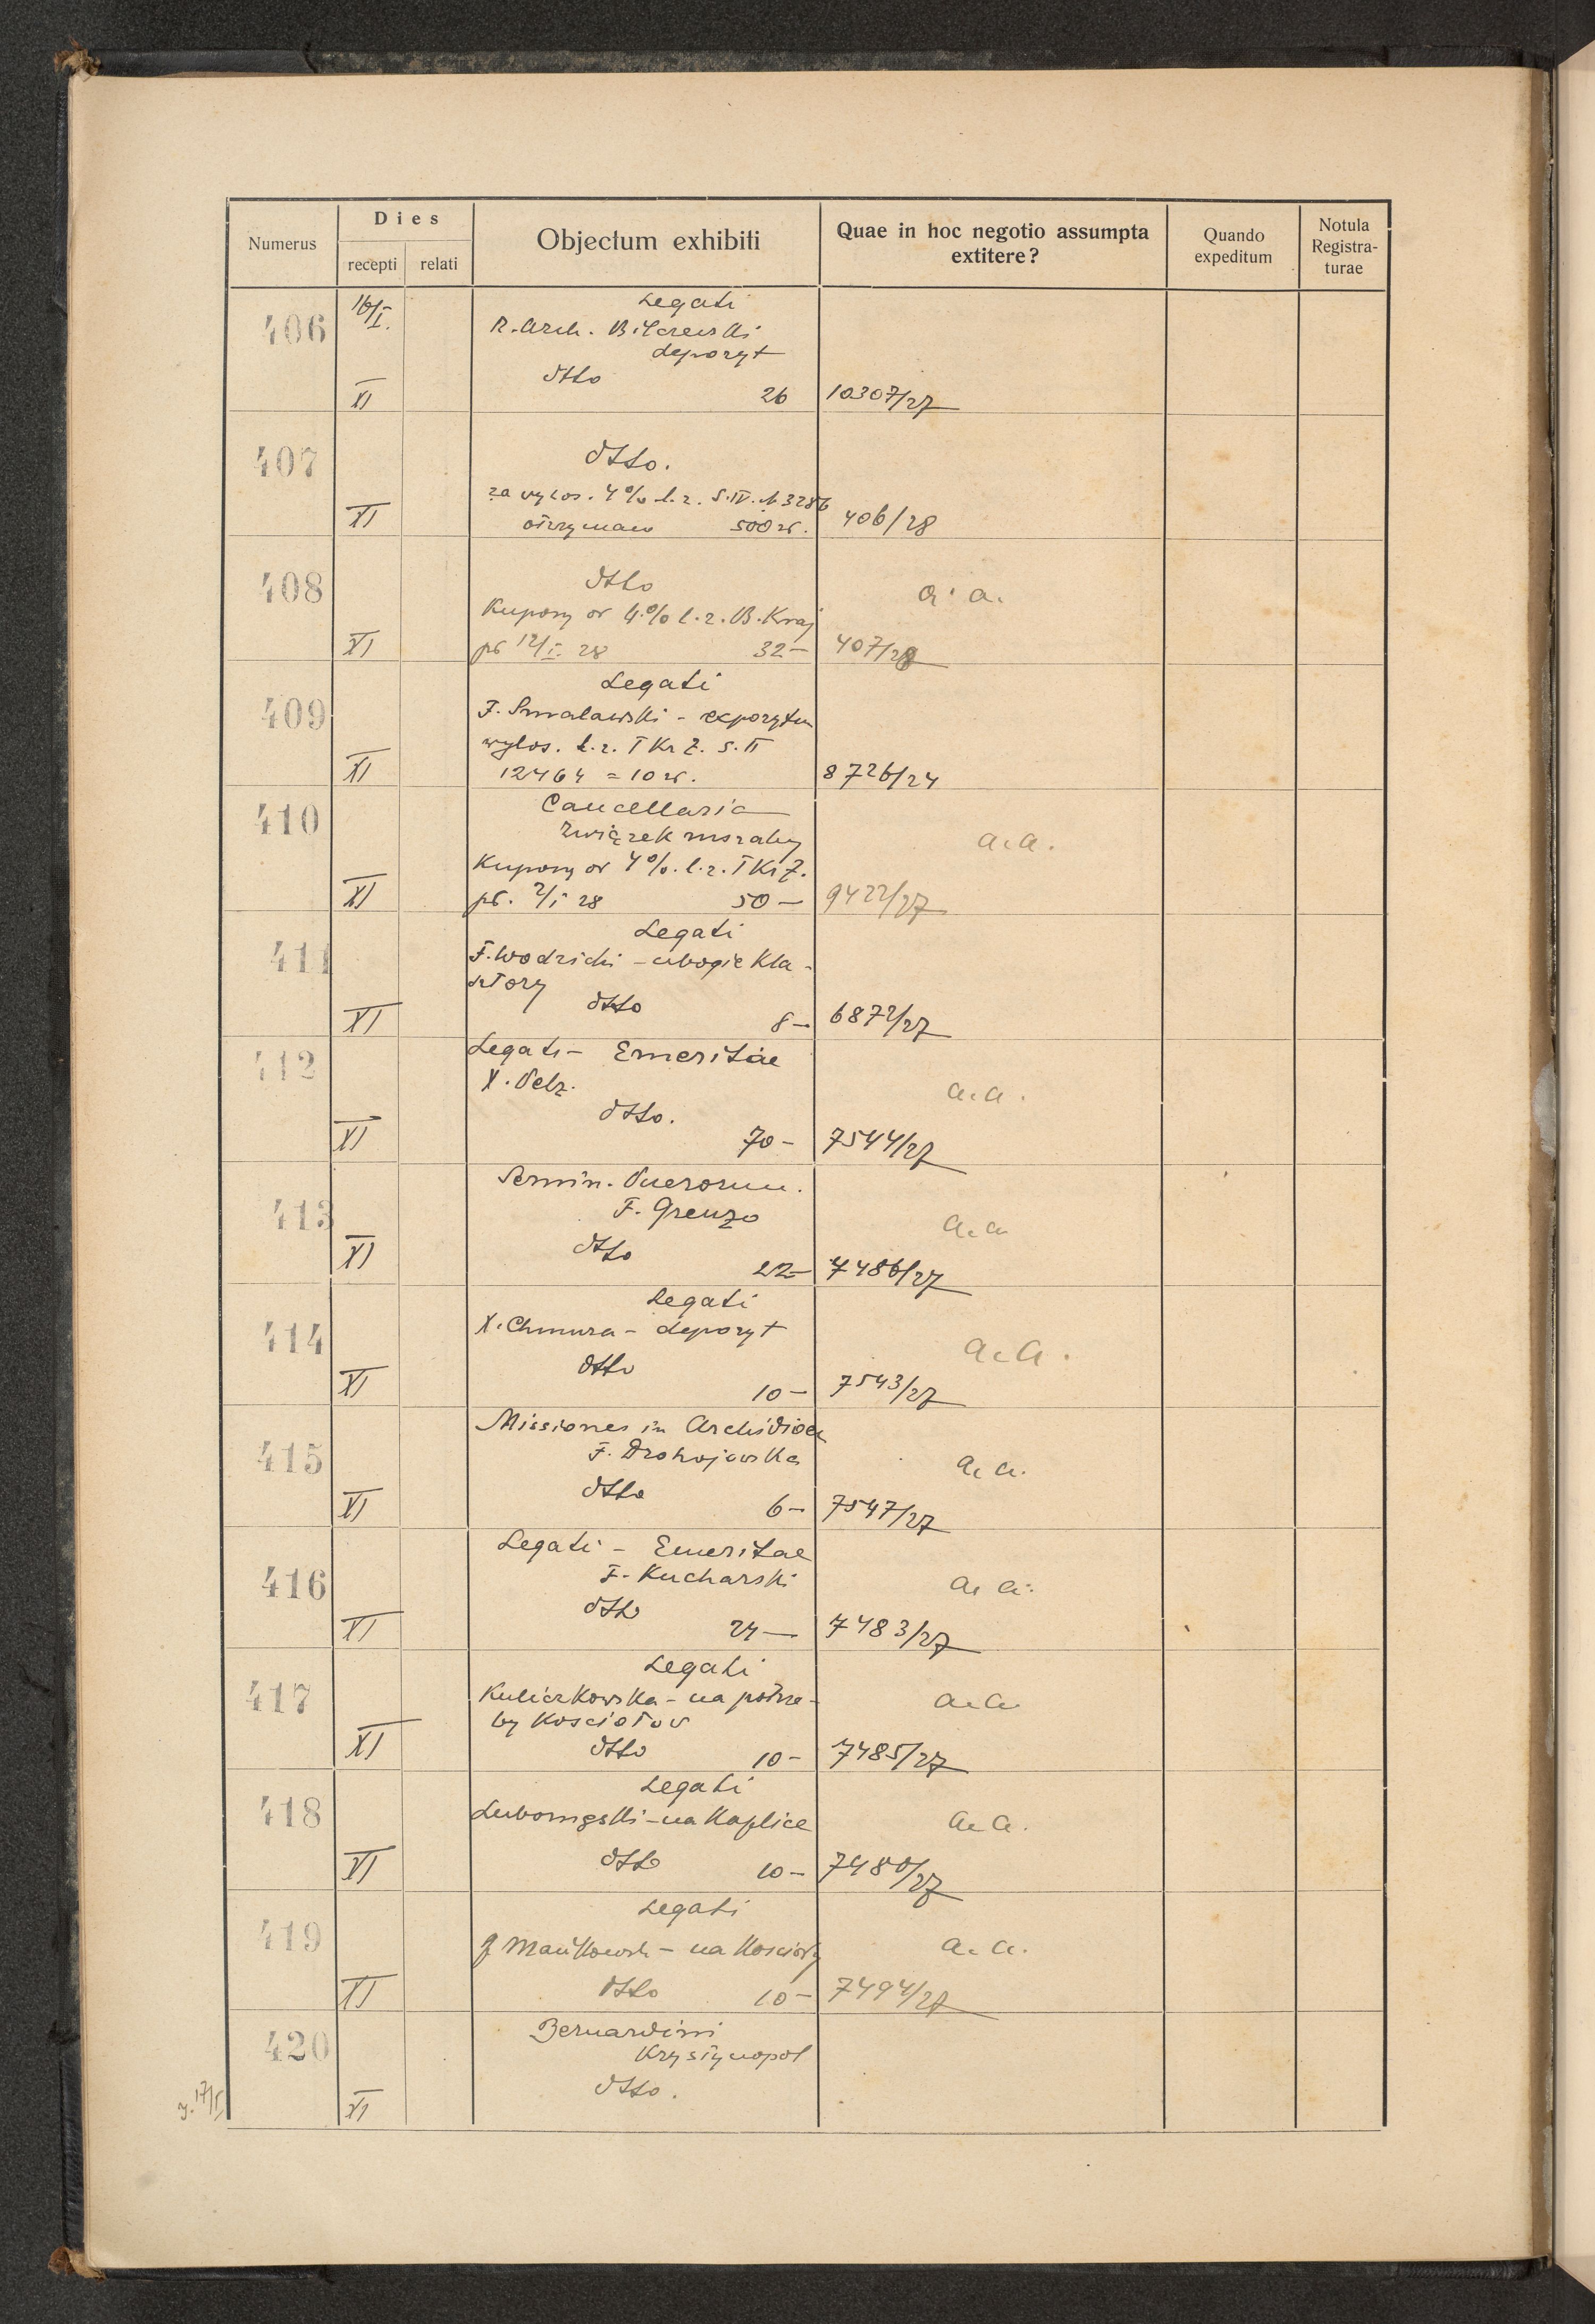 Numerus
Dies
recepti relati
Objectum exhibiti
Quae in hoc negotio assumpta
extitere?
Quando
expeditum
Notula
Registra-
turae
406
16/I.
Legati
R. Arch. Bilczewski
depozyt
dtto
XI 26 10307/27
407
dtto.
za wylos. 4% l. z. S. IV. N 3286
XI otrzymano 500 zł. 406/28
408
dtto
a. a.
Kupony od 4.% l. z. B. Kraj
XI pł 12/I. 28 32- 407/28
409
Legati
F. Smalawski - depozytum
wylos. l. z. T Kr Z. S. II
XI 12464 = 10 zł. 8726/24
410
Cancellaria
Związek mszalny
a. a.
Kupony od 4%. l. z. T Kr Z.
XI pł. 2/I 28 50- 9422/27
411
Legati
F. Wodzicki - ubogie kla-
sztory
dtto
XI 8- 6872/27
412
Legati - Emeritae
X. Pelz.
a. a.
dtto.
XI 70- 7544/27
413
Semin. Puerorum.
F. Grenzo
a. a
dtto
XI 22- 7486/27
414
Legati
X. Chmura - depozyt
a. a.
dtto
XI 10- 7543/27
415
Missiones in Archidioec
F. Drohojowska
a. a.
dtto
XI 6- 7547/27
416
Legati - Emeritae
F. Kucharski
a. a.
dtto
XI 24- 7483/27
417
Legati
Kuliczkowska - na potrze-
by kosciołow
a. a.
dtto
XI 10- 7485/27
418
Legati
Lubomirski - na kaplice
a. a.
dtto
XI 10- 7480/27
419
Legati
Mańkowsk - na kościoły
a. a.
dtto
XI 10- 7494/27
420
Bernardini
Krystynopol
dtto.
17/I
XI